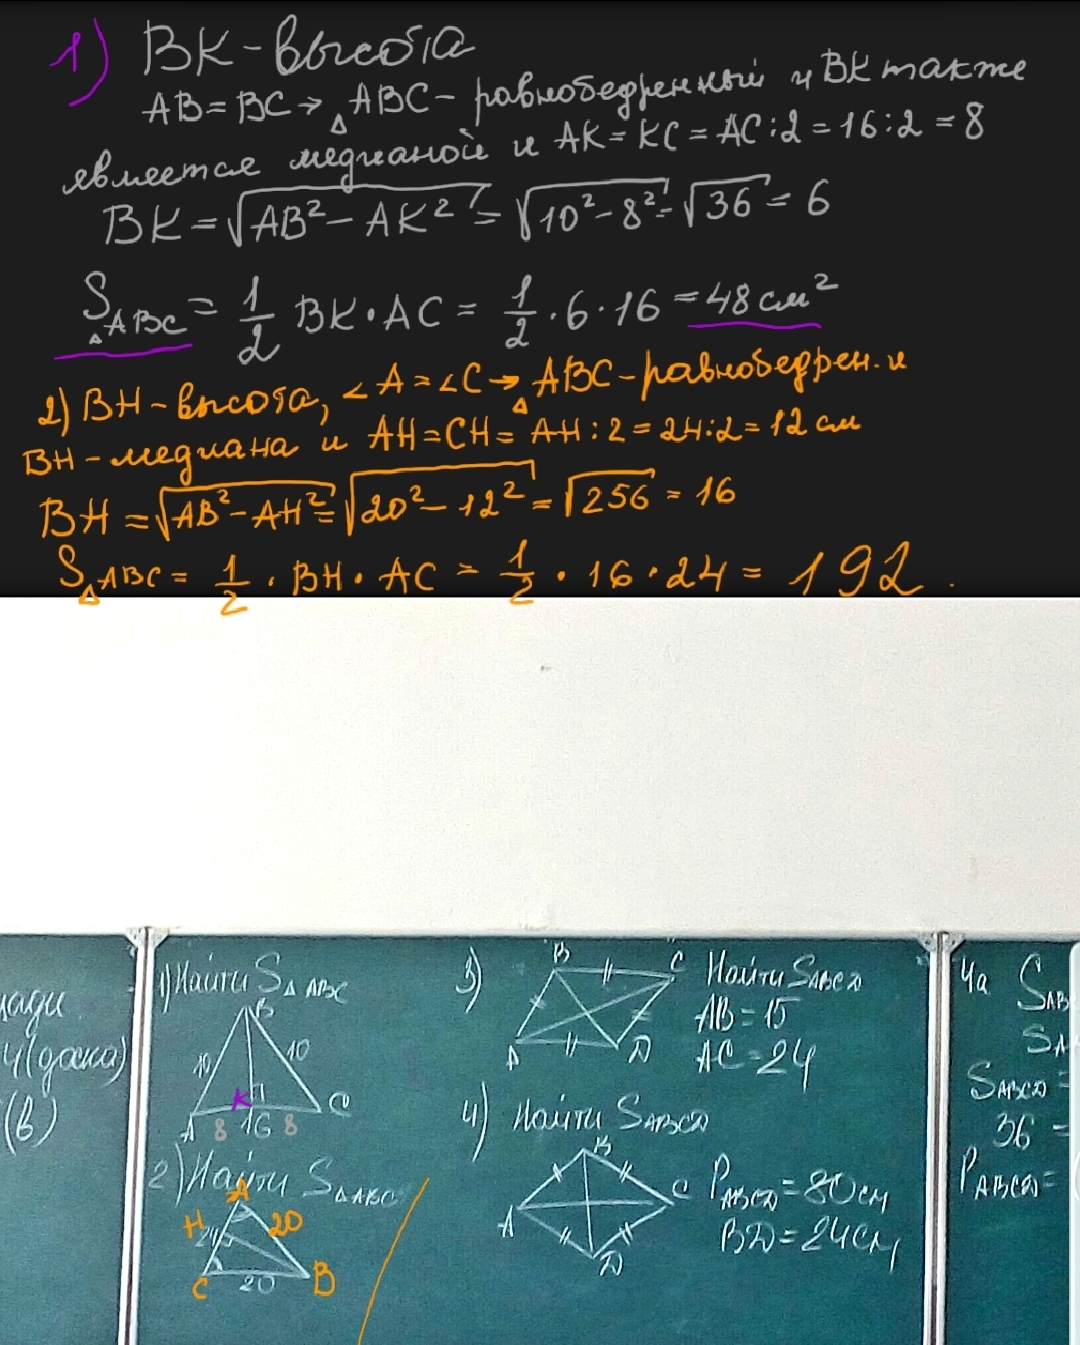 1) ВК - высота
АВ = ВС → △ АВС - равнобедренный и ВК также
является медианой и АК = КС = АС : 2 = 16 : 2 = 8
ВК = √АВ² - АК² = √10² - 8² = √36 = 6
S△ABC = 1/2 ВК · АС = 1/2 · 6 · 16 = 48 см²
2) ВН - высота, ∠A = ∠C → △ АВС - равнобедрен. и
ВН - медиана и АН = СН = АН : 2 = 24 : 2 = 12 см
ВН = √АВ² - АН² = √20² - 12² = √256 = 16
S△ABC = 1/2 · ВН · АС = 1/2 · 16 · 24 = 192.
4 (доска)
(в)
1) Найти S△ABC
B
10
10
K
A
8 16 8
C
2) Найти S△ABC
A
H
24
20
C
20
B
3)
B
C
A
D
Найти SABCD
AB = 15
AC = 24
4) Найти SABCD
B
A
C
D
PABCD = 80 см
BD = 24 см
4а
SAB
SA
SABCD =
36 =
PABCD =